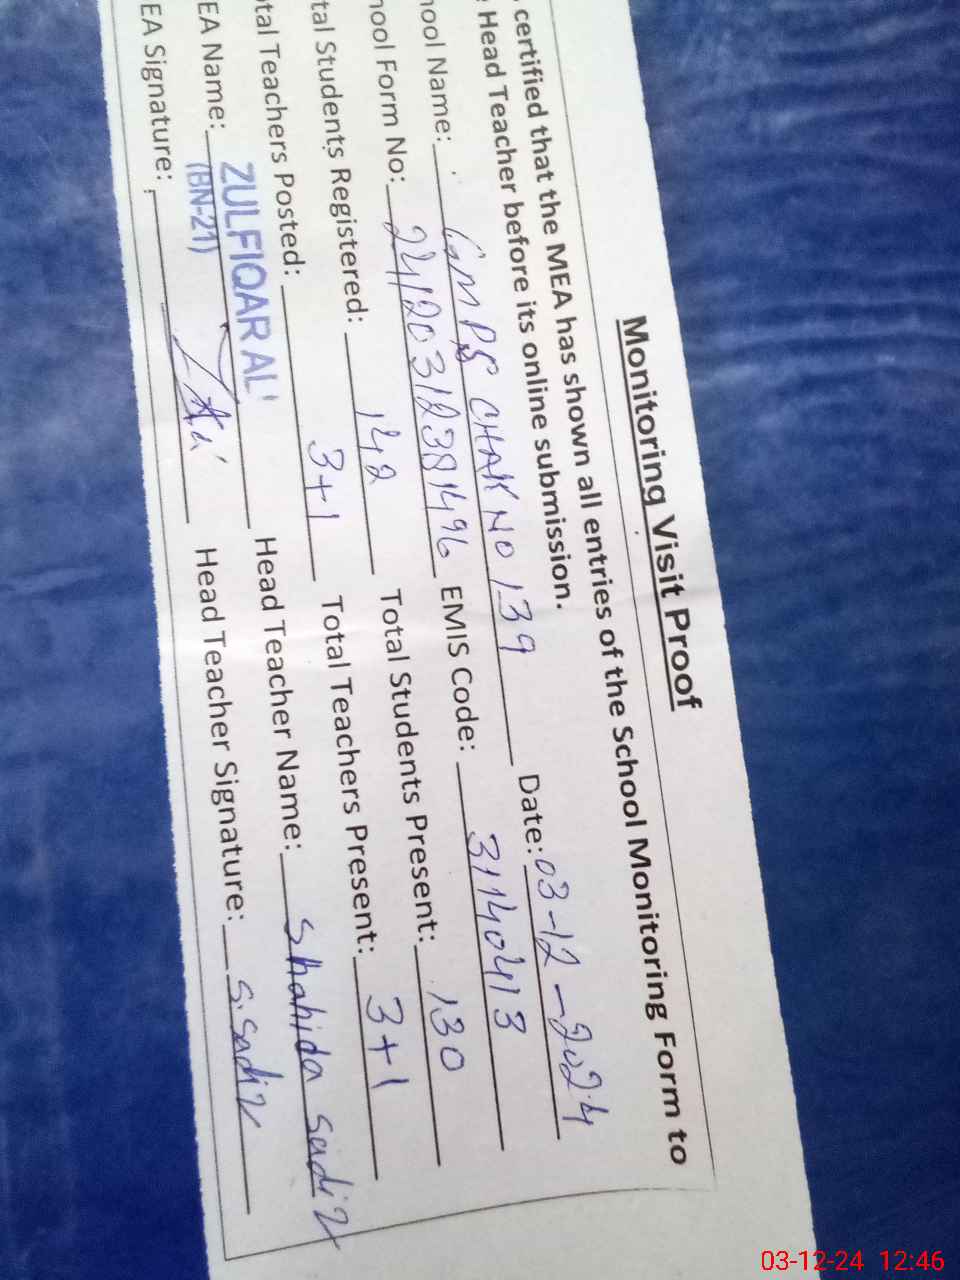 Monitoring Visit Proof
certified that the MEA has shown all entries of the School Monitoring Form to
Head Teacher before its online submission.
ool Name: GMPS CHAK NO 139 Date: 03-12-2024
ool Form No: 24120312381496 EMIS Code: 31140413
tal Students Registered: 142 Total Students Present: 130
tal Teachers Posted: 3+1 Total Teachers Present: 3+1
EA Name: ZULFIQAR ALI Head Teacher Name: Shahida Sadiq
(BN-21)
EA Signature: Head Teacher Signature: S.Sadiq
03-12-24 12:46